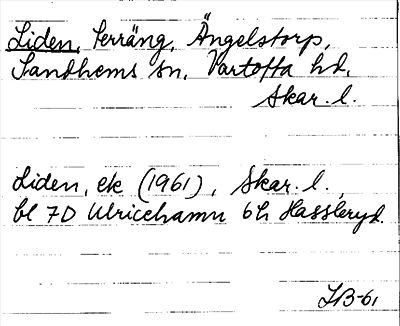 Liden, terräng, Ängelstorp,
Sandhems sn, Vartofta hd,
Skar. l.
Liden, ek (1961), Skar. l.,
bl 7D Ulricehamn 6h Hassleryd.
LB-61